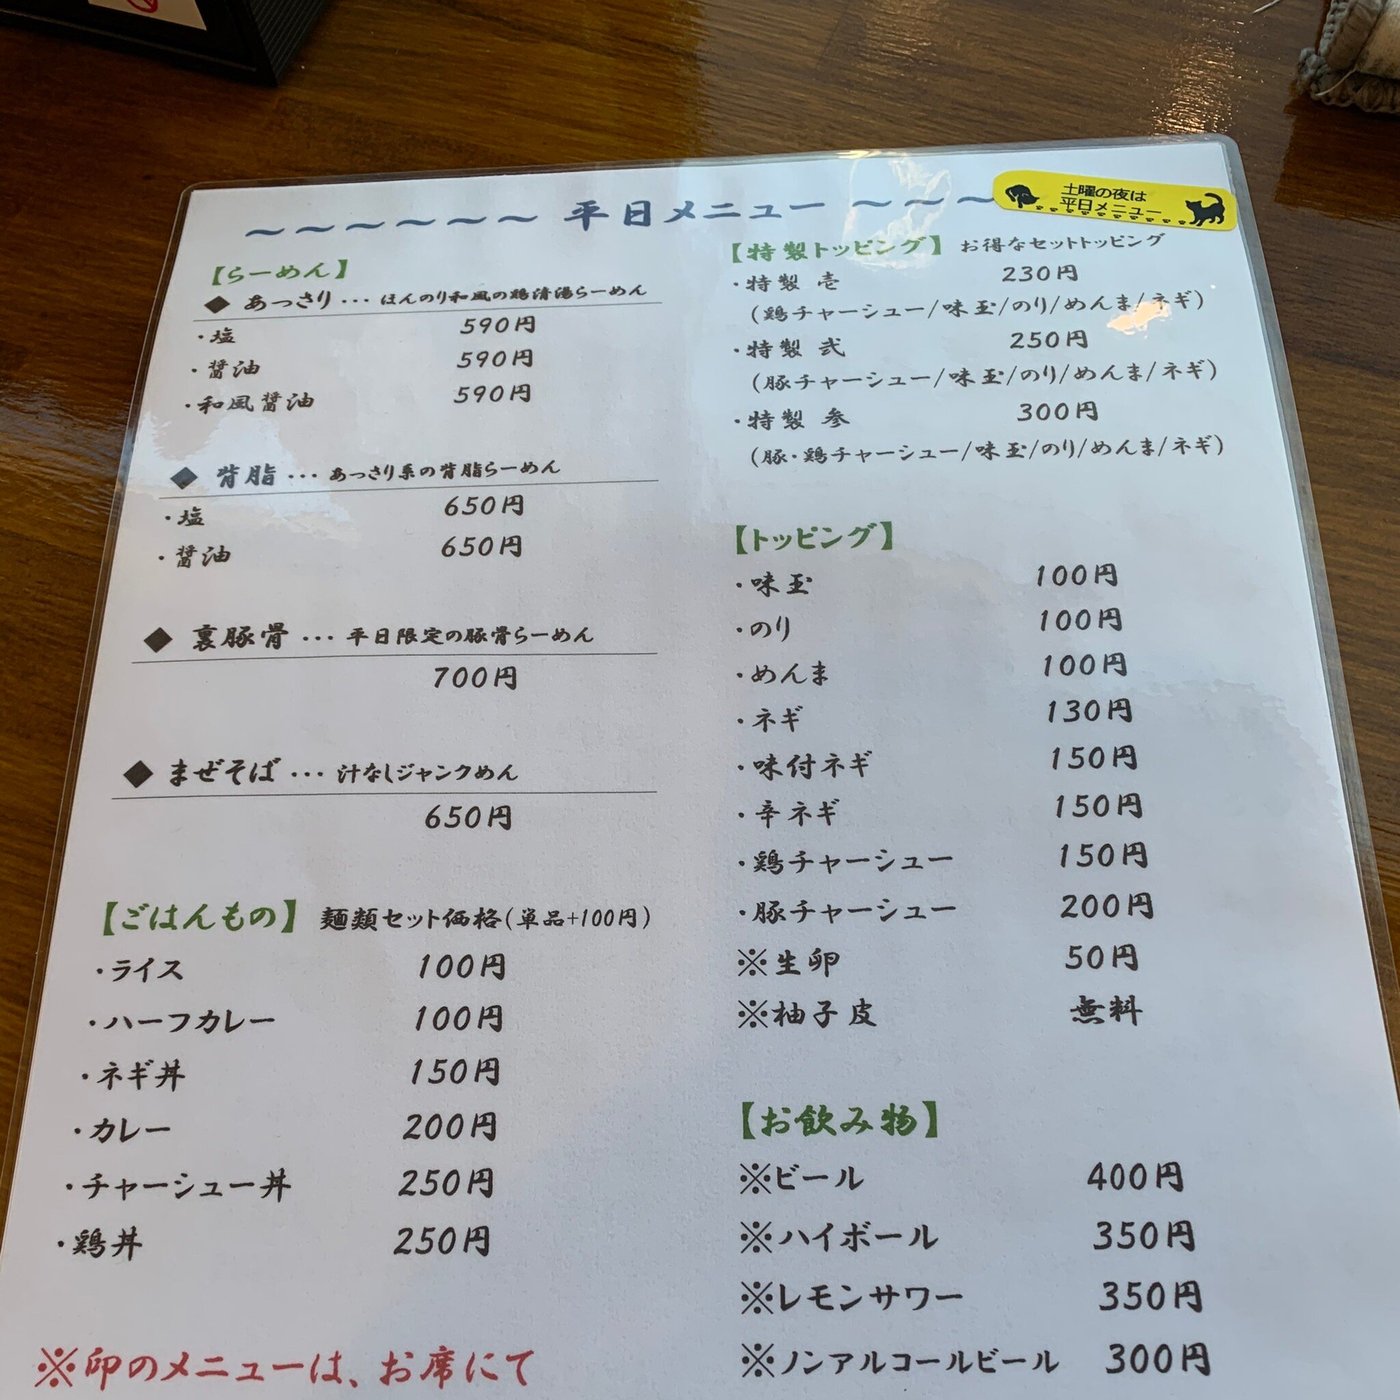 ～～～～～～ 平日メニュー ～～～
土曜の夜は
平日メニュー
【らーめん】
◆ あっさり … ほんのり和風の鶏清湯らーめん
・塩 590円
・醤油 590円
・和風醤油 590円
◆ 背脂 … あっさり系の背脂らーめん
・塩 650円
・醤油 650円
◆ 裏豚骨 … 平日限定の豚骨らーめん
700円
◆ まぜそば … 汁なしジャンクめん
650円
【ごはんもの】 麺類セット価格(単品+100円)
・ライス 100円
・ハーフカレー 100円
・ネギ丼 150円
・カレー 200円
・チャーシュー丼 250円
・鶏丼 250円
※印のメニューは、お席にて
【特製トッピング】 お得なセットトッピング
・特製 壱 230円
(鶏チャーシュー/味玉/のり/めんま/ネギ)
・特製 弐 250円
(豚チャーシュー/味玉/のり/めんま/ネギ)
・特製 参 300円
(豚・鶏チャーシュー/味玉/のり/めんま/ネギ)
【トッピング】
・味玉 100円
・のり 100円
・めんま 100円
・ネギ 130円
・味付ネギ 150円
・辛ネギ 150円
・鶏チャーシュー 150円
・豚チャーシュー 200円
※生卵 50円
※柚子皮 無料
【お飲み物】
※ビール 400円
※ハイボール 350円
※レモンサワー 350円
※ノンアルコールビール 300円